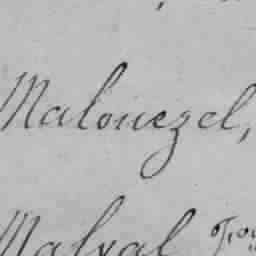 Malouezel,
Malval